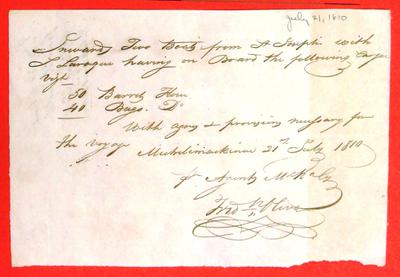 July 21, 1810
Inwards Two Boats from St Joseph with
J Laroque having on Board the following Cargo
Vizt
50 Barrels Flour
40 Bags Do
With agrés & provisions necessary for
the voyage Michilimackinac 21st July 1810
pr Agents McKay
Fred